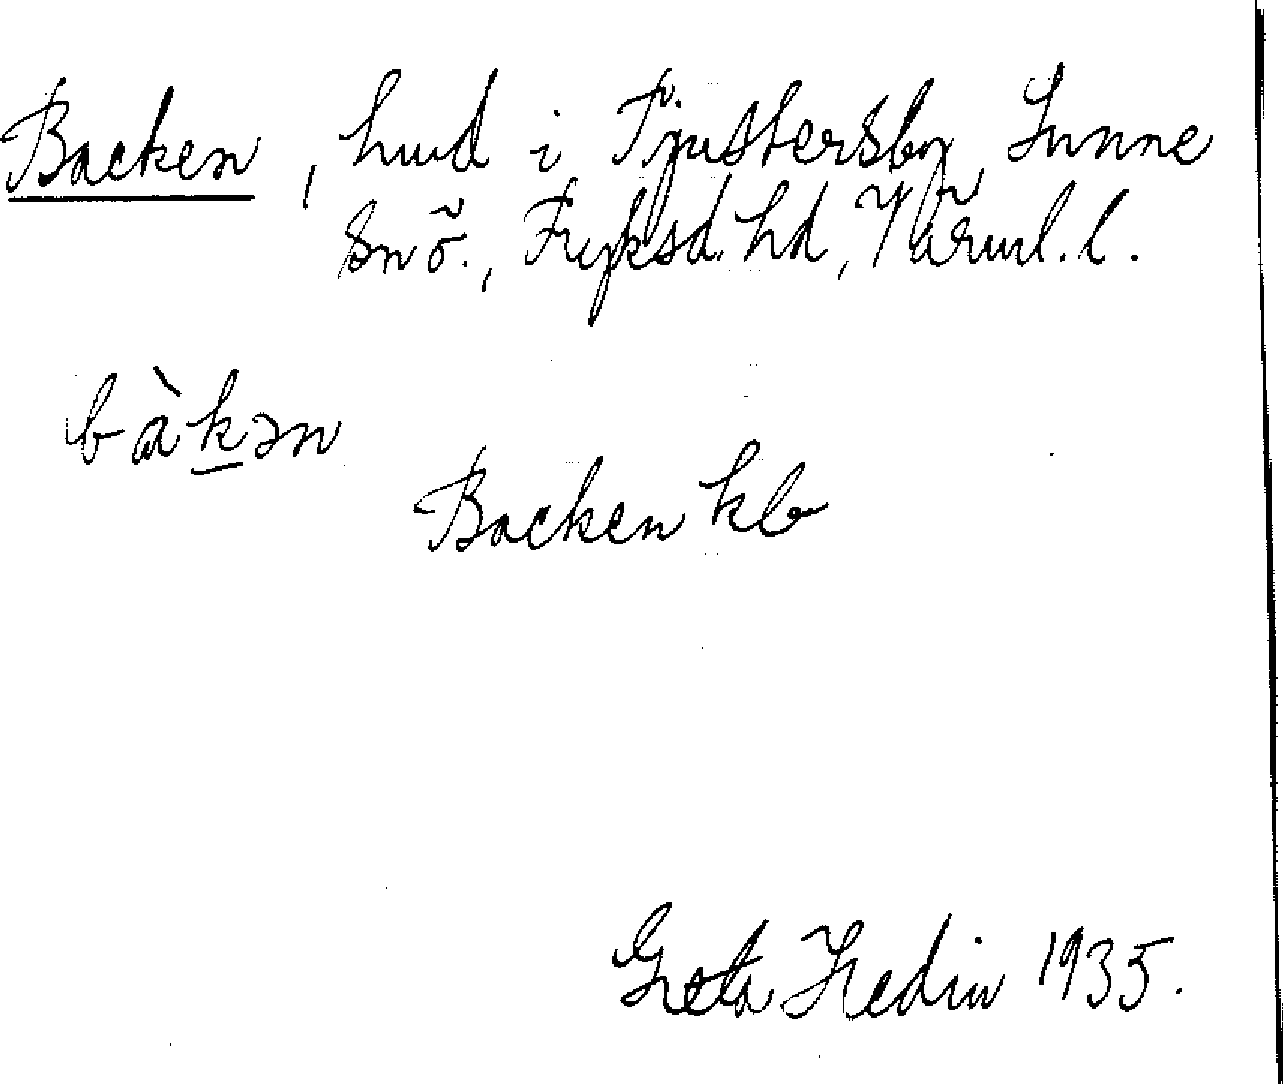 Backen, hmd i Tjustersby, Sunne
snö., Fryksd. hd, Värml. l.
bàkən
Backen kb
Greta Hedin 1935.